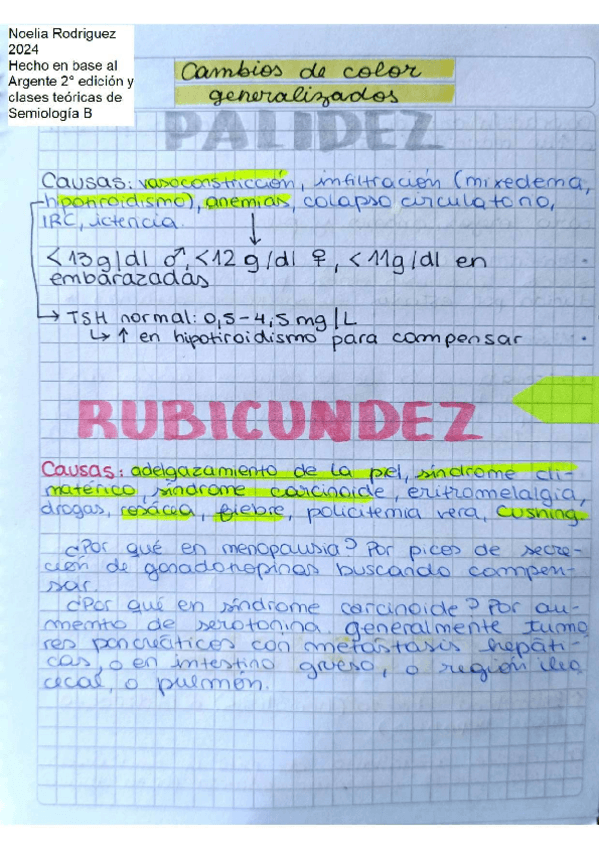 Noelia Rodriguez
2024
Hecho en base al
Argente 2° edición y
clases teóricas de
Semiología B
Cambios de color
generalizados
PALIDEZ
Causas: vasoconstricción, infiltración (mixedema,
hipotiroidismo), anemias, colapso circulatorio,
IRC, ictericia.
<13g/dl ♂, <12 g/dl ♀, <11g/dl en
embarazadas
→ TSH normal: 0,5-4,5 mg/L
↳ ↑ en hipotiroidismo para compensar
RUBICUNDEZ
Causas: adelgazamiento de la piel, síndrome cli-
matérico, síndrome carcinoide, eritromelalgia,
drogas, rosácea, fiebre, policitemia vera, Cushing.
¿Por qué en menopausia? Por picos de secre-
ción de gonadotropinas buscando compen-
sar.
¿Por qué en síndrome carcinoide? Por au-
mento de serotonina, generalmente tumo
res pancreáticos con metástasis hepáti-
cas, o en intestino grueso, o región ileo
cecal, o pulmón.